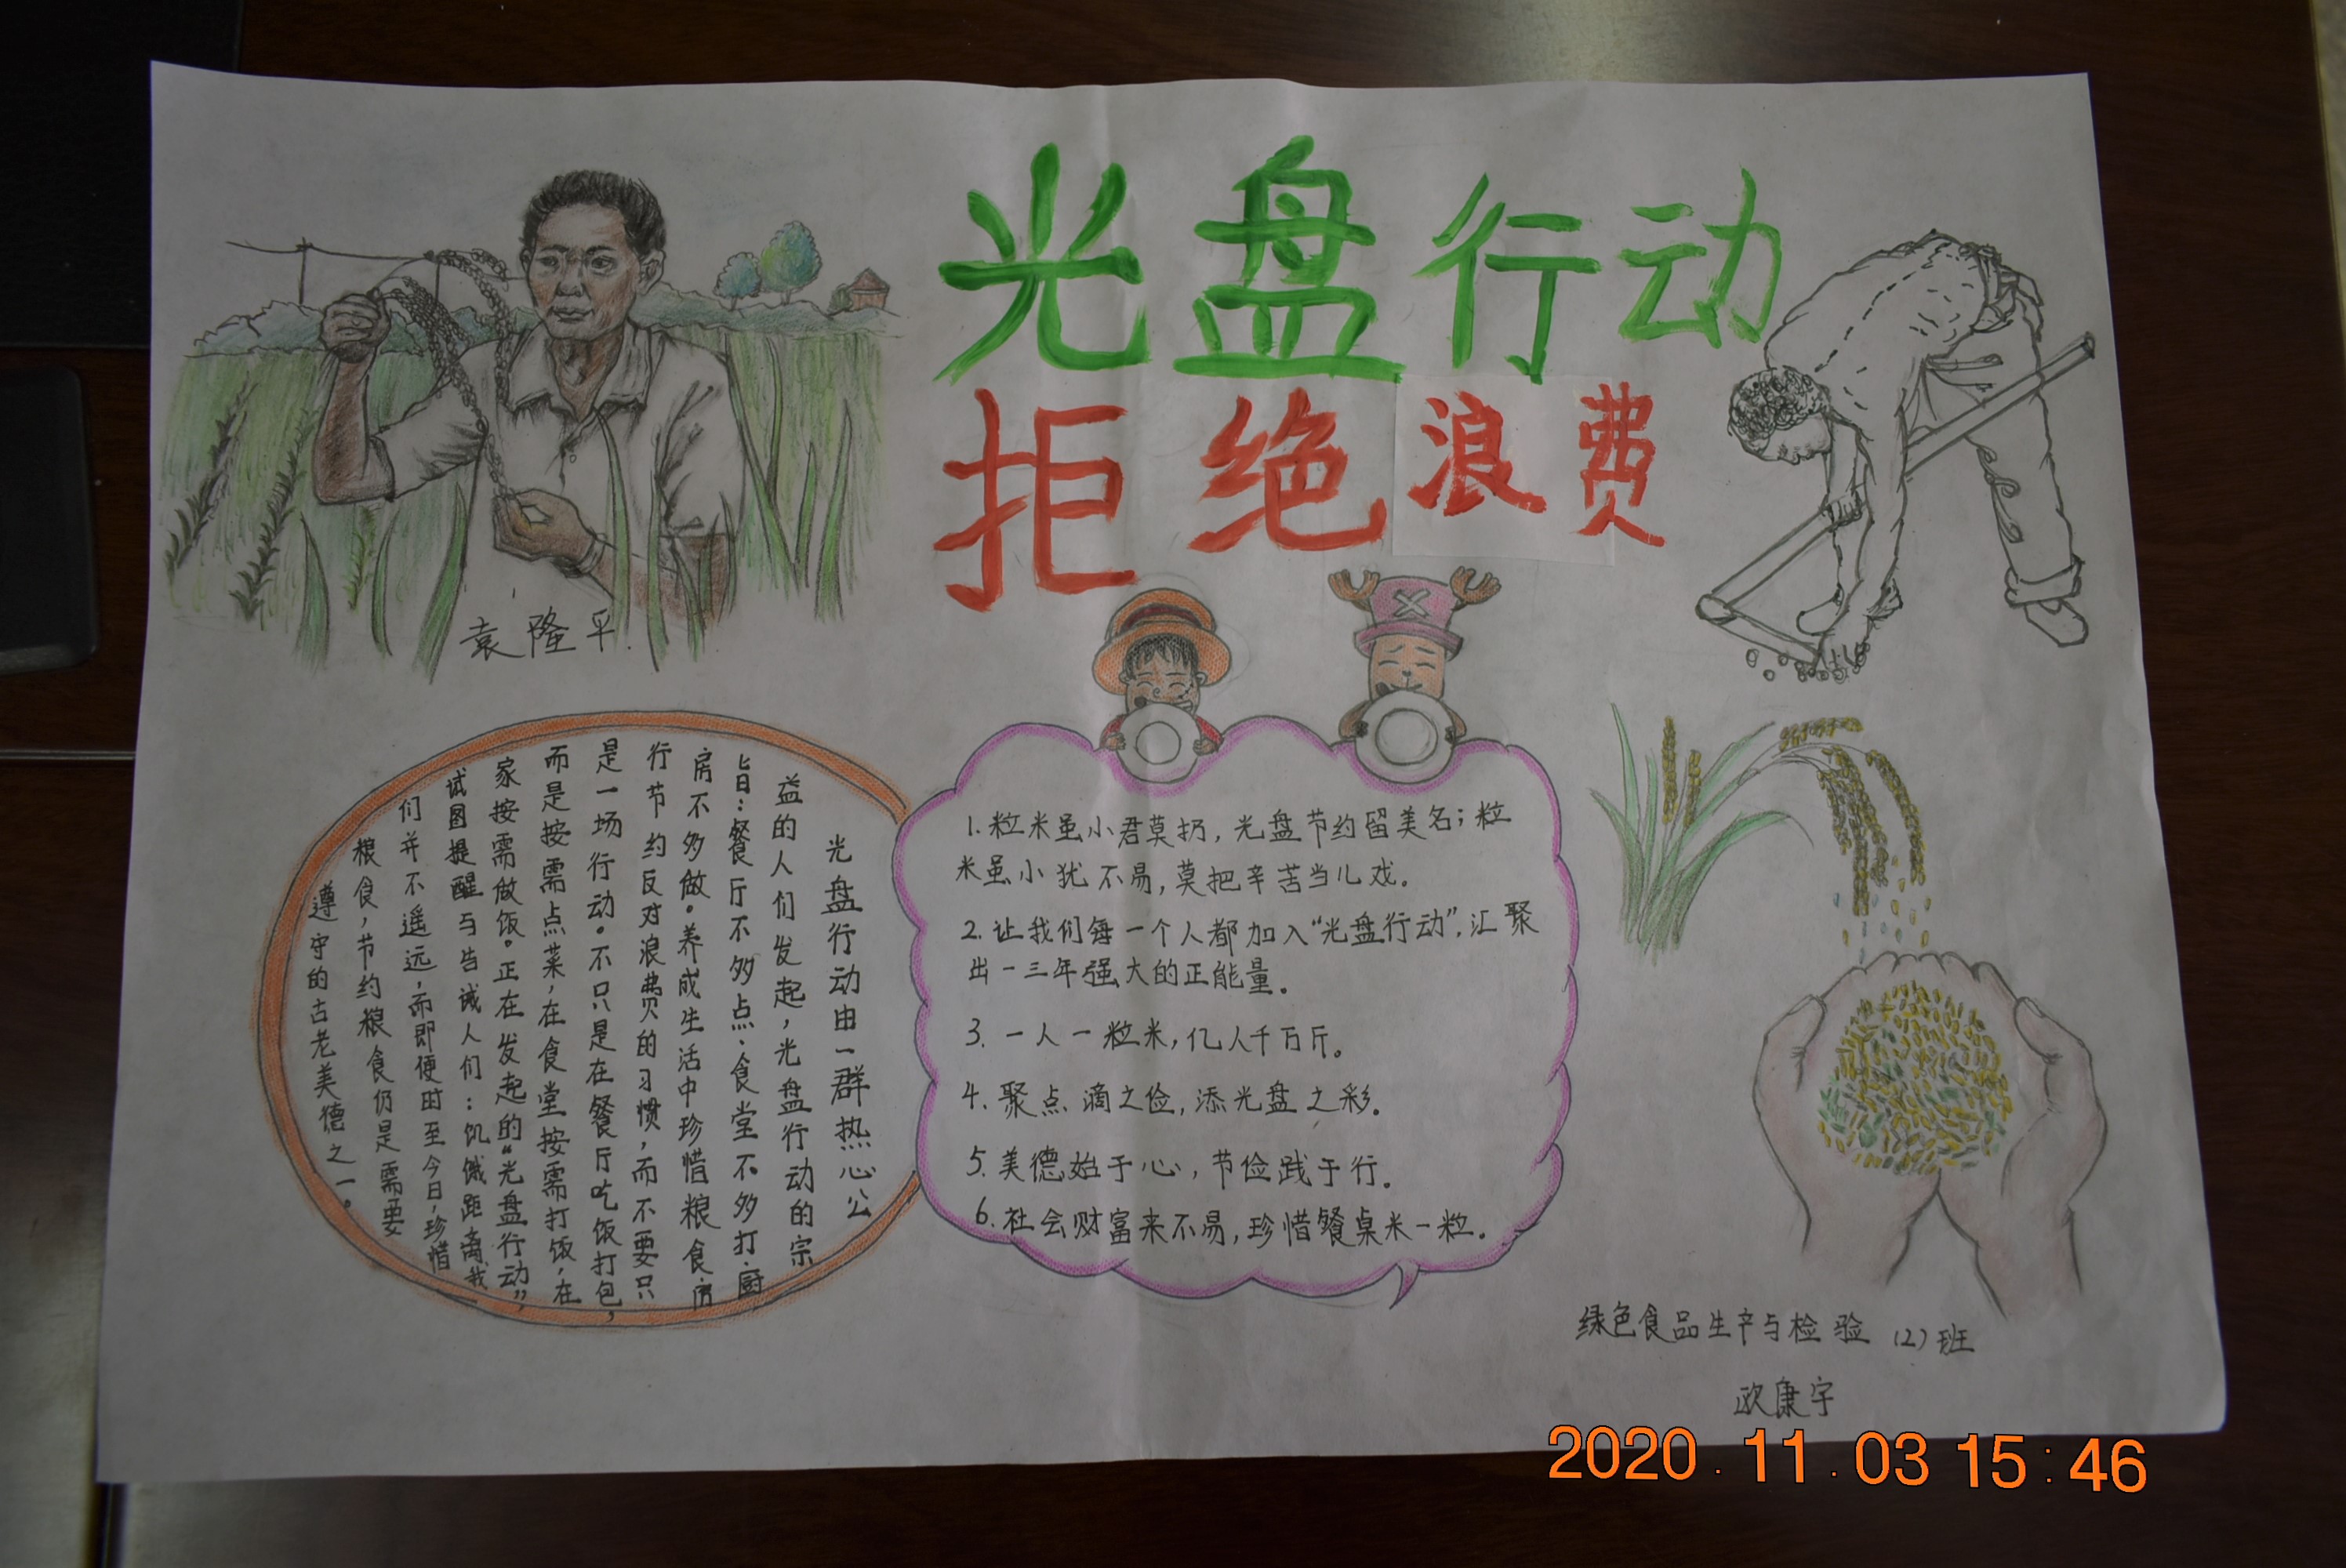 光盘行动
拒绝浪费
袁隆平
光盘行动由一群热心公
益的人们发起，光盘行动的宗
旨：餐厅不多点、食堂不多打、厨
房不多做。养成生活中珍惜粮食、厉
行节约反对浪费的习惯，而不要只
是一场行动。不只是在餐厅吃饭打包，
而是按需点菜，在食堂按需打饭，在
家按需做饭。正在发起的“光盘行动”，
试图提醒与告诫人们：饥饿距离我
们并不遥远，而即便时至今日，珍惜
粮食，节约粮食仍是需要
遵守的古老美德之一。
1. 粒米虽小君莫扔，光盘节约留美名；粒
米虽小犹不易，莫把辛苦当儿戏。
2. 让我们每一个人都加入“光盘行动”，汇聚
出一三年强大的正能量。
3. 一人一粒米，亿人千万斤。
4. 聚点滴之俭，添光盘之彩。
5. 美德始于心，节俭践于行。
6. 社会财富来不易，珍惜餐桌米一粒。
绿色食品生产与检验（2）班
欧康宇
2020.11.03 15:46